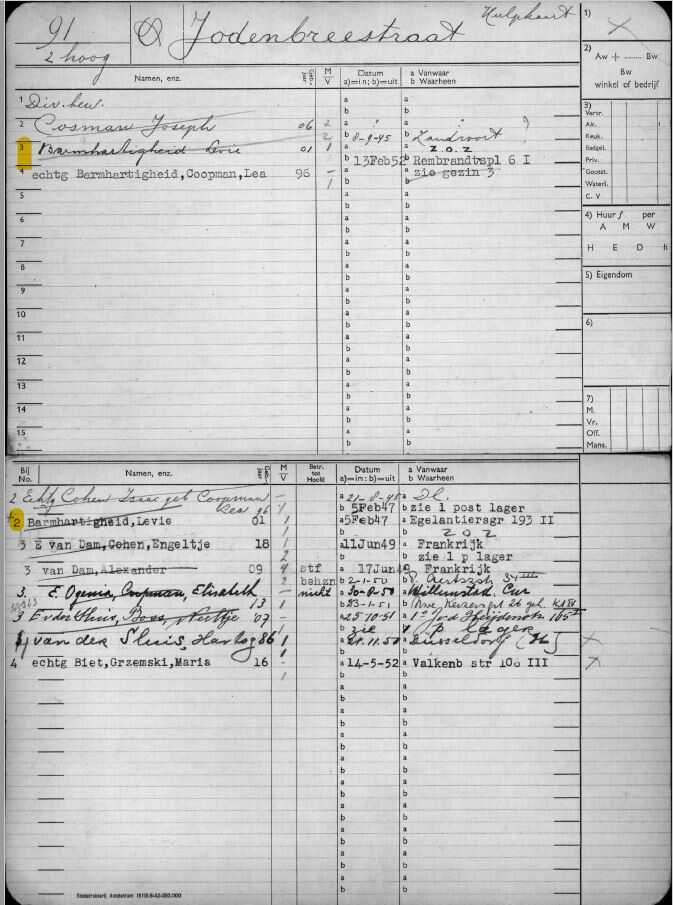 91
2 hoog
Jodenbreestraat
Hulpkaart
1)
2)
Aw + ........ Bw
Bw
winkel of bedrijf
Namen, enz.
M
V
Datum
a)=in; b)=uit
a Vanwaar
b Waarheen
1 Div. bew. a
b
2 Cosman Joseph 06 2 a
2 b 8-9-45 b Zandvoort
3 Barmhartigheid Levie 01 1 a a z.o.z
b 13Feb52 Rembrandtspl 6 I
4 echtg Barmhartigheid,Coopman,Lea 96 - a a zie gezin 3
1 b b
5 a a
b b
6 a a
b b
7 a a
b b
8 a a
b b
9 a a
b b
10 a a
b b
11 a a
b b
12 a a
b b
13 a a
b b
14 a a
b b
15 a a
b b
3)
Verstr.
Alk.
Keuk.
Badgel.
Priv.
Gootst.
Waterl.
C. V
4) Huur ƒ per
A M W
H E D h
5) Eigendom
6)
7)
M.
Vr.
Off.
Mans.
Bij
No.
Namen, enz.
M
V
Betr.
tot
Hoofd
Datum
a)=in: b)=uit
a Vanwaar
b Waarheen
2 Echtg Cohen Isaac geb Coopman - a 21-8-45 a Dl.
Lea 96 1 b 5Feb47 b zie 1 post lager
2 Barmhartigheid,Levie 01 1 a 5Feb47 a Egelantiersgr 193 II
1 b b z o z
3 E van Dam,Cohen,Engeltje 18 1 a 11Jun49 a Frankrijk
2 b b zie 1 p lager
3 van Dam,Alexander 09 stf a 17Jun49 Frankrijk
2 behzn b 2-1-50 b P. Aertszstr 34 III
3. E. Coopman, Elisabeth - nicht a 30-8-50 a Willemstad. Cur
13 1 b 23-1-51 b Nwe Keizersgr 26
3 E v der Sluis, Boas, 07 - a 25 10-51 a
b zie 1 p lager
4 van der Sluis, Hartog 86 1 a 21.11.51 a Düsseldorf
1 b b
4 echtg Biet,Grzemski,Maria 16 - a 14-5-52 a Valkenb str 106 III
1 b b
a a
b b
a a
b b
a a
b b
a a
b b
a a
b b
a a
b b
a a
b b
a a
b b
a a
b b
Stadsdrukkerij Amsterdam